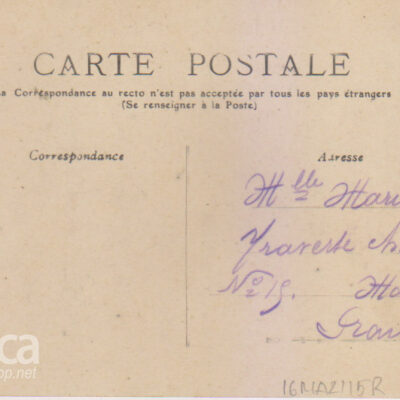 CARTE POSTALE
La Correspondance au recto n'est pas acceptée par tous les pays étrangers
(Se renseigner à la Poste)
Correspondance
Adresse
Mlle Mari
Traverse
No 19.
16MAZ115R
ca
op.net